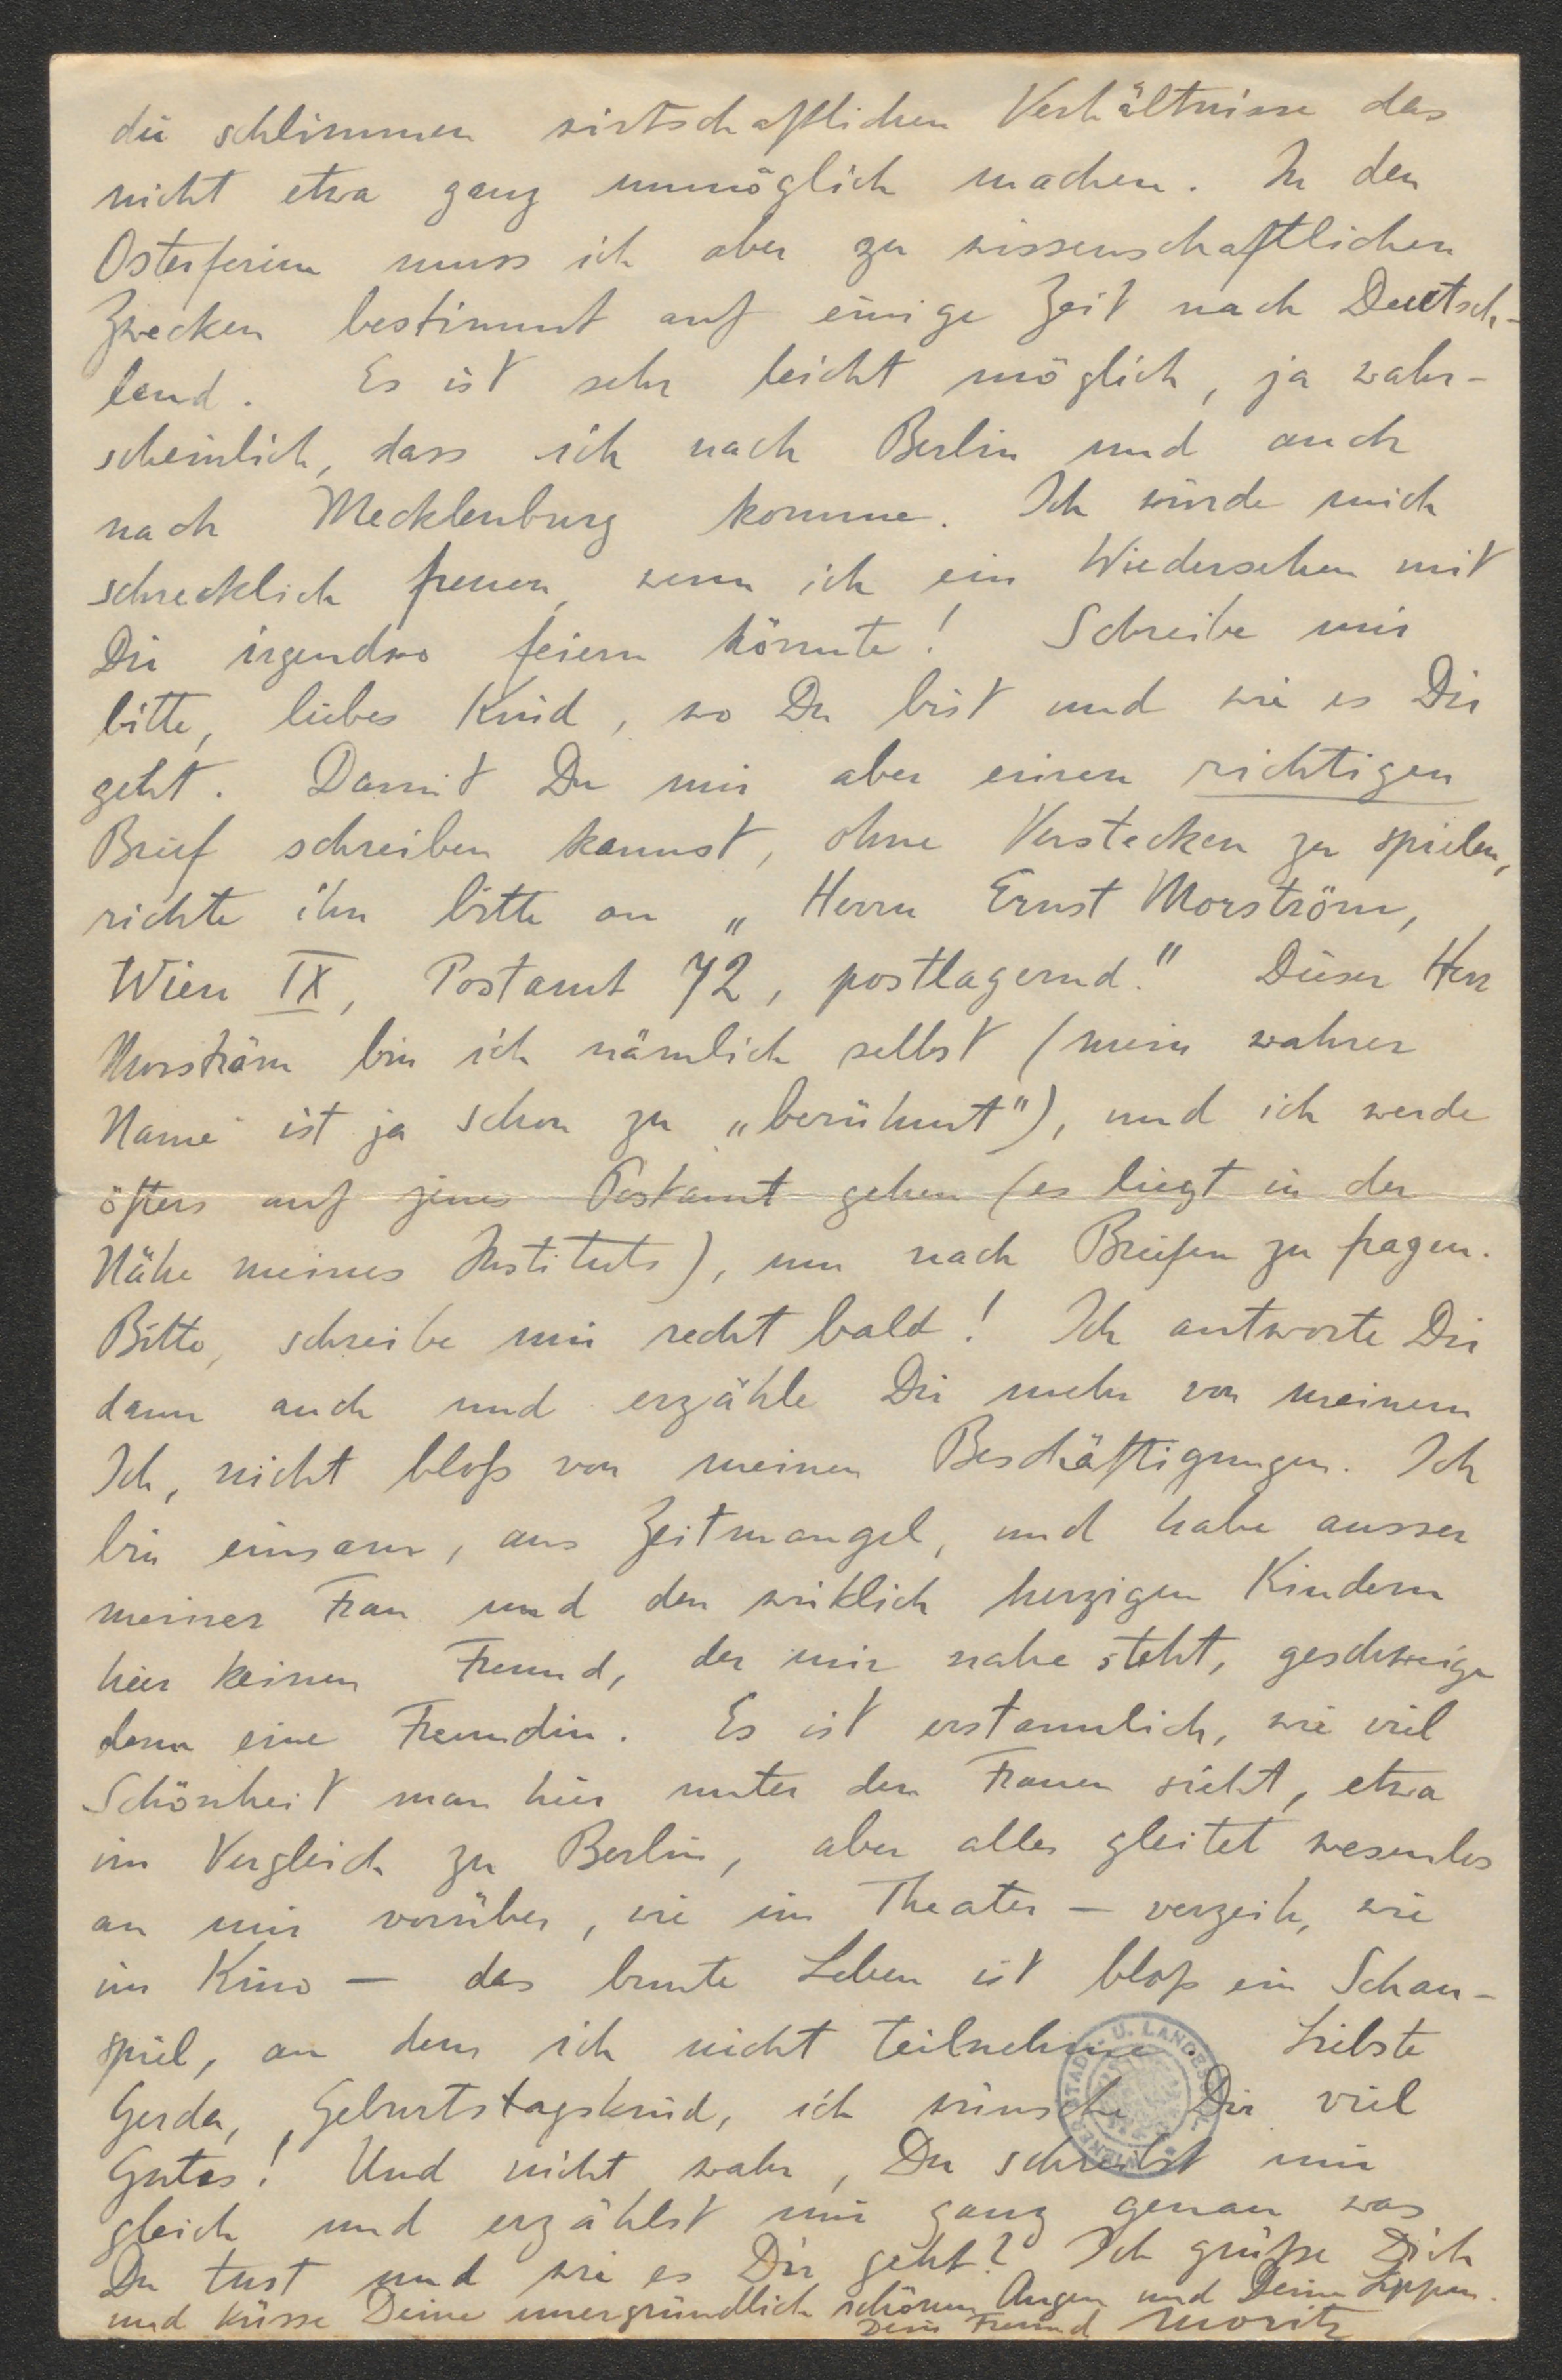 die schlimmen wirtschaftlichen Verhältnisse das
nicht etwa ganz unmöglich machen. In den
Osterferien muss ich aber zu wissenschaftlichen
Zwecken bestimmt auf einige Zeit nach Deutsch-
land. Es ist sehr leicht möglich, ja wahr-
scheinlich, dass ich nach Berlin und auch
nach Mecklenburg komme. Ich würde mich
schrecklich freuen, wenn ich ein Wiedersehen mit
Dir irgendwo feiern könnte! Schreibe mir
bitte, liebes Kind, wo Du bist und wie es Dir
geht. Damit Du mir aber einen richtigen
Brief schreiben kannst, ohne Verstecken zu spielen,
richte ihn bitte an „Herrn Ernst Morström,
Wien IX, Postamt 72, postlagernd." Dieser Herr
Morström bin ich nämlich selbst (mein wahrer
Name ist ja schon zu „berühmt"), und ich werde
öfters auf jenes Postamt gehen (es liegt in der
Nähe meines Instituts), um nach Briefen zu fragen.
Bitte, schreibe mir recht bald! Ich antworte Dir
dann auch und erzähle Dir mehr von meinem
Ich, nicht bloß von meinen Beschäftigungen. Ich
bin einsam, aus Zeitmangel, und habe ausser
meiner Frau und den wirklich herzigen Kindern
hier keinen Freund, der mir nahe steht, geschweige
denn eine Freundin. Es ist erstaunlich, wie viel
Schönheit man hier unter den Frauen sieht, etwa
im Vergleich zu Berlin, aber alles gleitet wesenlos
an mir vorüber, wie im Theater — verzeih, wie
im Kino — das bunte Leben ist bloß ein Schau-
spiel, an dem ich nicht teilnehme. Liebste
Gerda, Geburtstagskind, ich wünsche Dir viel
Gutes! Und nicht wahr, Du schreibst mir
gleich und erzählst mir ganz genau was
Du tust und wie es Dir geht? Ich grüße Dich
und küsse Deine unergründlich schönen Augen und Deine Lippen.
Dein Freund Moritz